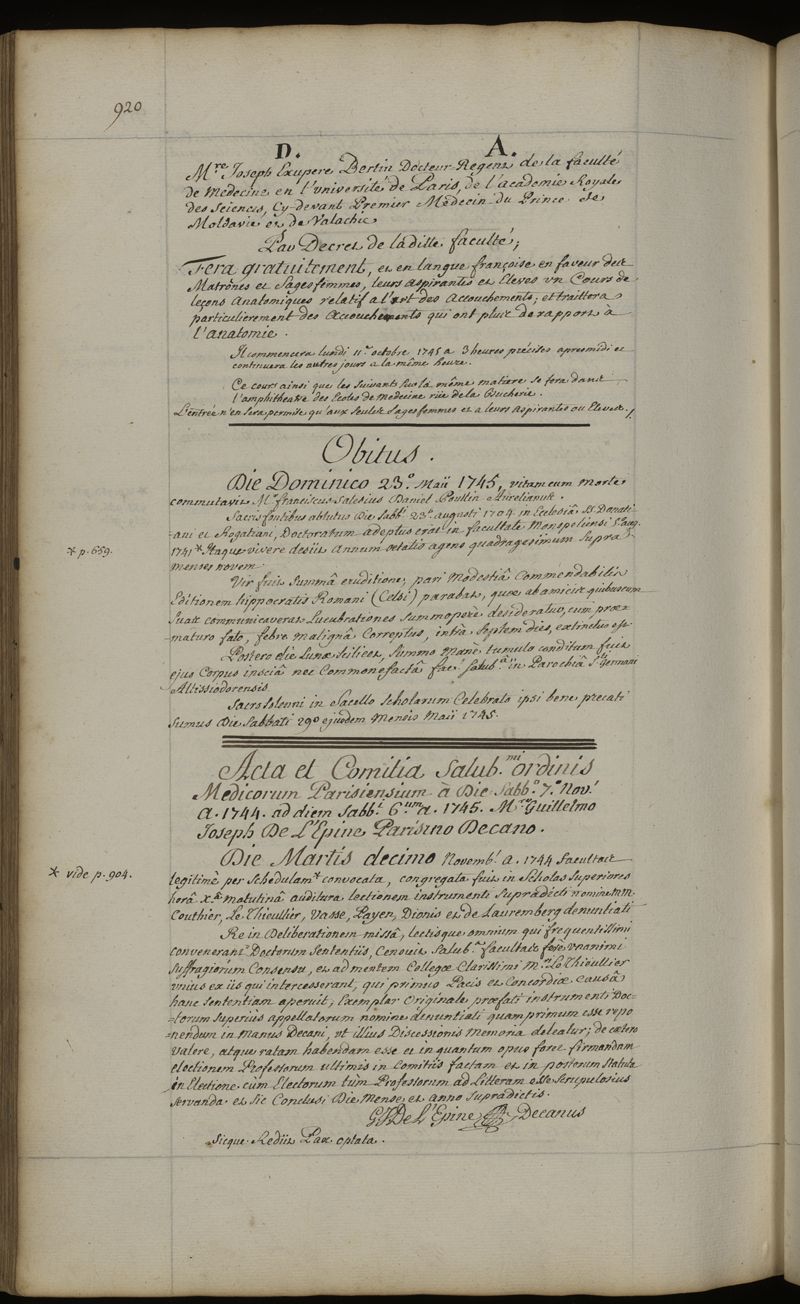 920
D. A.
Mre Joseph Exupere Bertin Docteur Regent de la faculté
de Medecine en l'université de Paris, de l'academie Royale
des Sciences, Cy-devant Premier Médecin du Prince de
Moldavie et de Valachie
Par Decret de laditte faculté;
Fera gratuitement, et en langue françoise en faveur des
Matrônes et Sagesfemmes, leurs aspirantes et Eleves un Cours de
leçons anatomiques relatif a l'art des accouchements; et traittera
particulierement des Accouchements qui ont plus de rapport à
l'anatomie.
Il commencera lundi 11e octobre 1745 a 3 heures précises apresmidi et
continuera les autres jours a la même heure.
Ce cours ainsi que les Suivants sur la même matiere se fera dans
l'amphitheatre des Ecoles de Medecine rue de la Bucherie.
L'entrée n'en sera permise qu'aux seules Sagesfemmes et a leurs aspirantes ou Eleves./
Obitus.
Die Dominico 23º. Maii 1745, vitam cum morte
commutavit Mr franciscus Salesius Daniel Poullin Aurelianus.
Sacris fontibus ablutus Die Sabbi. 23º. augusti 1704. in Ecclesia SS. Donati-
=ani et Rogatiani, Doctoratum adeptus erat in facultate Monspeliensi 5ª aug.
* p. 659.
1741*. Itaque vivere desiit annum aetatis agens quadragesimum supra
menses novem.
Vir fuit Summâ eruditione, pari Modestiâ Commendabilis
Editionem hippocratis Romani (Celsi) parabat, quae ab amicis quibuscum
suas communicaverat Lucubrationes Summopere desideratur, cum prae=
maturo fato, febre malignâ Correptus, intrà Septem dies, extinctus est.
Postero die Lunae scilicet, Summo Mane, tumulo conditum fuit
ejus Corpus insciâ nec Commonefactâ fac. salub.ª in Parochiâ Sti Germani
Altissiodorensis.
Sacro Solenni in Sacello Scholarum Celebrato ipsi bene precati
Sumus Die Sabbati 29º ejusdem Mensis Maii 1745.
Acta et Comitia Salub.mi ordinis
Medicorum Parisiensium à Die Sabb.º 7.º Nov.
a. 1744. ad diem Sabb. 6.um a. 1745. Mro Guillelmo
Joseph De L'Epine Parisino Decano.
* vide p. 904.
Die Martis decimo Novemb. a. 1744 facultas
legitimè per Schedulam* convocata, congregata fuit in Scholas Superiores
horâ x.ª matutinâ auditura lectionem instrumenti Supradicti nomine mm.
Couthier, Le Thieullier, Vasse, Payen, Dionis et de Lauremberg denuntiati
Re in Deliberationem missâ, lectisque omnium qui frequentissimi
convenerant Doctorum Sententiis, Censuit Salub.ª facultas fere unanimi
Suffragiorum Consensu, et ad mentem Collegae Clarissimi Mri Le Thieullier
unius ex iis qui intercesserant, qui primus Pacis et Concordiae causâ
hanc Sententiam aperuit; Exemplar Originale praefati instrumenti Doc-
=torum Superiùs appellatorum nomine denuntiati quamprimum esse repo
=nendum in manus Decani, ut illius Discessionis Memoria deleatur; de caetero
valere, atque ratam habendam esse et in quantum opus foret firmandam
electionem Professorum ultimis in Comitiis factam et in posterum Statuta
in Electione cùm Electorum tùm Professorum ad Litteram esse Scrupulosius
servanda. et Sic Conclusi Die Mense, et anno Supradictis.
G.J. De L'Epine Decanus
Sicque Rediit Pax optata.